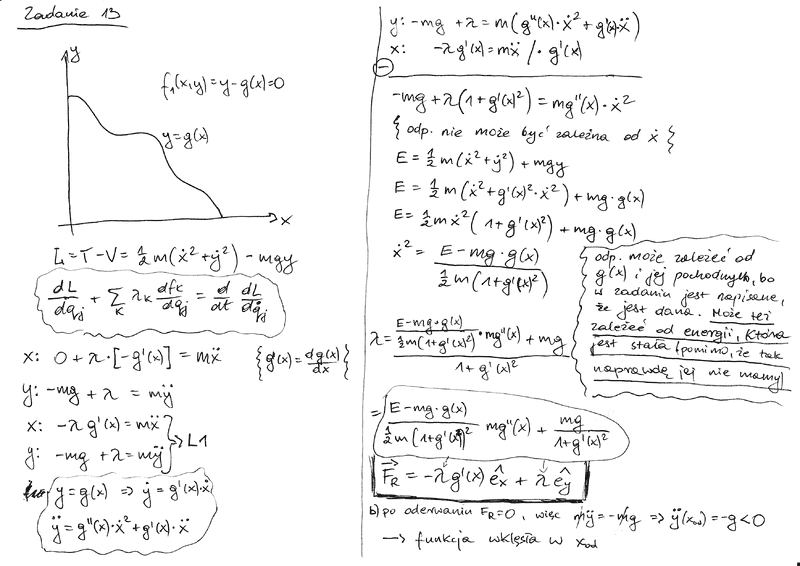 Zadanie 13
y
f₁(x,y) = y-g(x)=0
y=g(x)
x
L = T - V = 1/2 m(ẋ²+ẏ²) - mgy
dL/dqⱼ + Σ_K λ_K df_K/dqⱼ = d/dt dL/dq̇ⱼ
x: 0 + λ·[-g'(x)] = mẍ {g'(x) = dg(x)/dx}
y: -mg + λ = mÿ
x: -λg'(x) = mẍ
y: -mg + λ = mÿ
L1
y = g(x) => ẏ = g'(x)·ẋ
ÿ = g''(x)·ẋ² + g'(x)·ẍ
y: -mg + λ = m(g''(x)·ẋ² + g'(x)·ẍ)
x: -λg'(x) = mẍ /· g'(x)
-
-mg + λ(1+g'(x)²) = mg''(x)·ẋ²
{ odp. nie może być zależna od ẋ }
E = 1/2 m(ẋ²+ẏ²) + mgy
E = 1/2 m(ẋ²+g'(x)²·ẋ²) + mg·g(x)
E = 1/2 mẋ²(1+g'(x)²) + mg·g(x)
ẋ² = (E-mg·g(x)) / (1/2 m(1+g'(x)²))
odp. może zależeć od
g(x) i jej pochodnych, bo
w zadaniu jest napisane,
że jest dana. Może też
zależeć od energii, która
jest stała (pomimo, że tak
naprawdę jej nie mamy)
λ = ((E-mg·g(x)) / (1/2 m(1+g'(x)²)) · mg''(x) + mg) / (1+g'(x)²)
= (E-mg·g(x)) / (1/2 m(1+g'(x)²)²) mg''(x) + mg / (1+g'(x)²)
F_R = -λg'(x) ê_x + λ ê_y
b) po oderwaniu F_R=0, więc mÿ = -mg => ÿ(x_od) = -g < 0
→ funkcja wklęsła w x_od